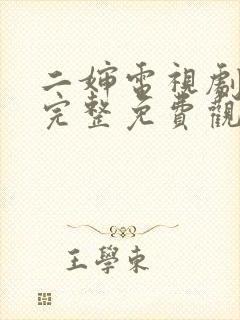 二婶電視劇
完整免費觀
王學東